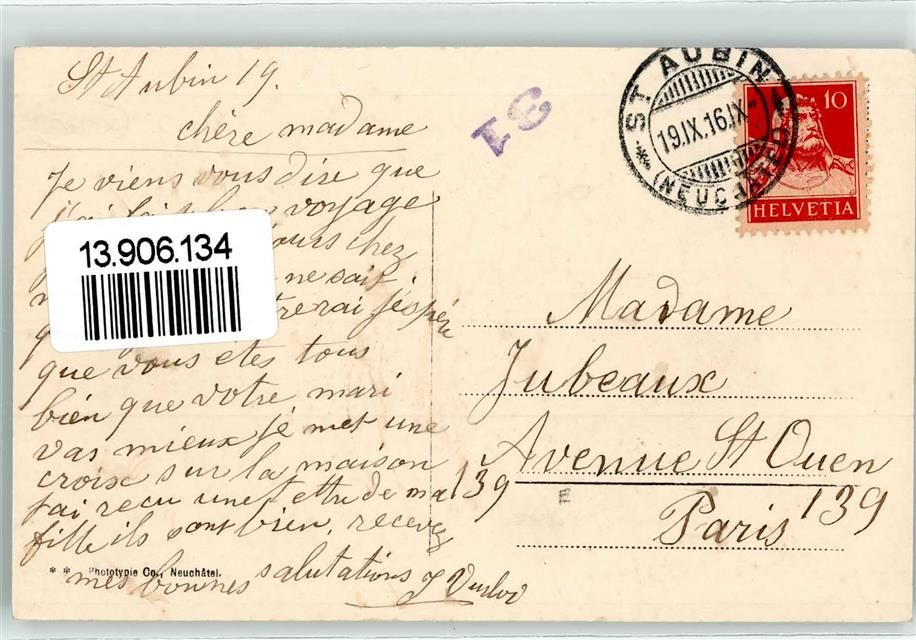 St Aubin 19.
chère madame
Je viens vous dire que
voyage
jours chez
ne sais
trerai j'espère
que vous etes tous
bien que votre mari
vas mieux je met une
croix sur la maison
jai recu une lettre de ma
fille ils sont bien, recevez
mes bonnes salutations
* * Phototypie Co., Neuchâtel.
13.906.134
31
ST AUBIN
19.IX.16.IX
(NEUCHÂTEL)
10
HELVETIA
Madame
Jubeaux
Avenue St Ouen
139
Paris 139
E